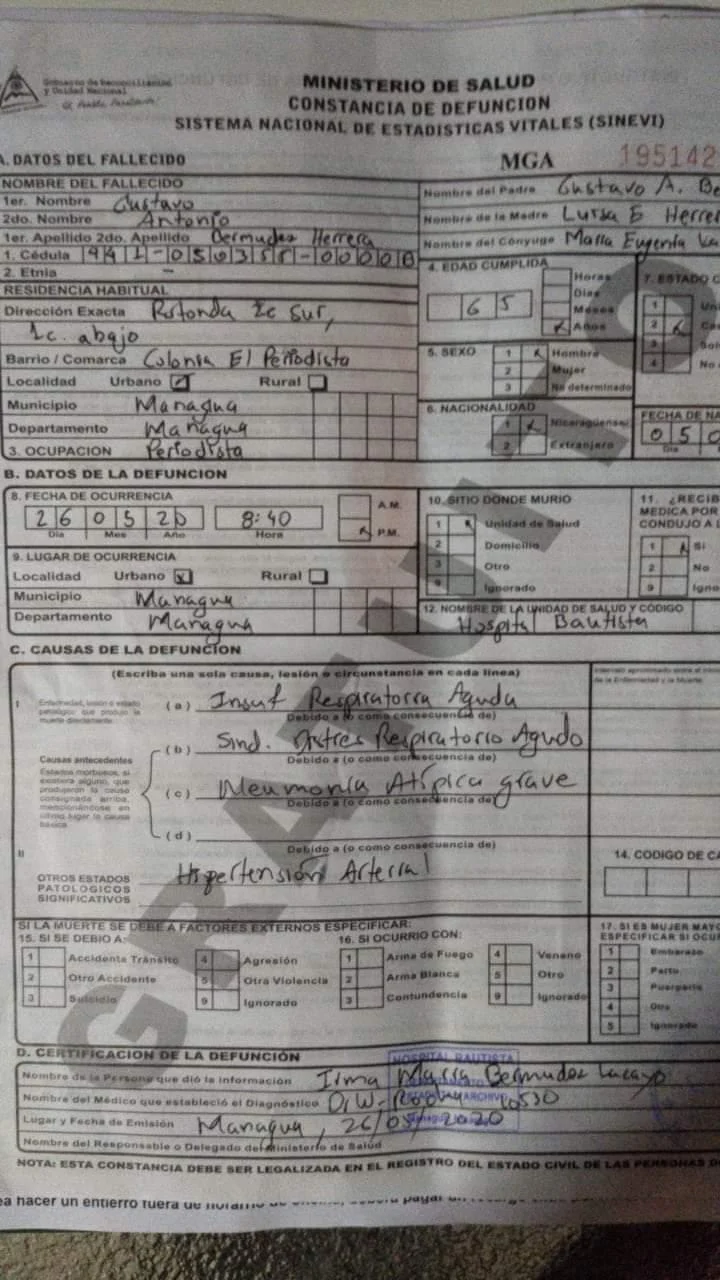 Gobierno de Reconciliación
y Unidad Nacional
El Pueblo, Presidente!
MINISTERIO DE SALUD
CONSTANCIA DE DEFUNCION
SISTEMA NACIONAL DE ESTADISTICAS VITALES (SINEVI)
A. DATOS DEL FALLECIDO
MGA 195142
NOMBRE DEL FALLECIDO
1er. Nombre Gustavo
2do. Nombre Antonio
1er. Apellido 2do. Apellido Bermudez Herrera
1. Cédula
2. Etnia –
Nombre del Padre Gustavo A. Be
Nombre de la Madre Luisa E Herrer
Nombre del Cónyuge Maria Eugenia La
RESIDENCIA HABITUAL
Dirección Exacta Rotonda 2c sur,
1c. abajo
Barrio / Comarca Colonia El Periodista
Localidad Urbano Rural
Municipio Managua
Departamento Managua
3. OCUPACION Periodista
4. EDAD CUMPLIDA
65
Horas
Dias
Meses
x Años
5. SEXO
1 x Hombre
2 Mujer
3 No determinado
6. NACIONALIDAD
1 x Nicaragüense
2 Extranjero
7. ESTADO C
1 Uni
2 x Cas
3 Solt
4 No
FECHA DE NA
0 5 0
Dia
B. DATOS DE LA DEFUNCION
8. FECHA DE OCURRENCIA
26 05 20 8:40
Dia Mes Año Hora
A.M.
x P.M.
9. LUGAR DE OCURRENCIA
Localidad Urbano x Rural
Municipio Managua
Departamento Managua
10. SITIO DONDE MURIO
1 x Unidad de Salud
2 Domicilio
3 Otro
9 Ignorado
11. ¿RECIB
MEDICA POR
CONDUJO A L
1 x Si
2 No
9 Igno
12. NOMBRE DE LA UNIDAD DE SALUD Y CÓDIGO
Hospital Bautista
C. CAUSAS DE LA DEFUNCION
(Escriba una sola causa, lesión o circunstancia en cada linea)
I
Enfermedad, lesión o estado
patológico que produjo la
muerte directamente
(a) Insuf Respiratoria Aguda
Debido a (o como consecuencia de)
(b) Sind. Distres Respiratorio Agudo
Debido a (o como consecuencia de)
Causas antecedentes
Estados morbosos, si
existiera alguno, que
produjeron la causa
consignada arriba,
mencionándose en
último lugar la causa
básica
(c) Neumonía Atípica grave
Debido a (o como consecuencia de)
(d)
Debido a (o como consecuencia de)
II
OTROS ESTADOS
PATOLOGICOS
SIGNIFICATIVOS
Hipertensión Arterial
de la Enfermedad y la Muerte
14. CODIGO DE CA
SI LA MUERTE SE DEBE A FACTORES EXTERNOS ESPECIFICAR:
15. SI SE DEBIO A:
1 Accidente Tránsito
2 Otro Accidente
3 Suicidio
4 Agresión
5 Otra Violencia
9 Ignorado
16. SI OCURRIO CON:
1 Arma de Fuego
2 Arma Blanca
3 Contundencia
4 Veneno
5 Otro
9 Ignorado
17. SI ES MUJER MAYO
ESPECIFICAR SI OCUR
1 Embarazo
2 Parto
3 Puerperio
4 Otra
5 Ignorado
D. CERTIFICACION DE LA DEFUNCIÓN
HOSPITAL BAUTISTA
Nombre de la Persona que dió la información Irma Maria Bermudez Lacayo
Nombre del Médico que estableció el Diagnóstico
ARCHIVO
Lugar y Fecha de Emisión Managua, 26/05/2020
Nombre del Responsable o Delegado del Ministerio de Salud
NOTA: ESTA CONSTANCIA DEBE SER LEGALIZADA EN EL REGISTRO DEL ESTADO CIVIL DE LAS PERSONAS D
ea hacer un entierro fuera de horario de
GRATUITO